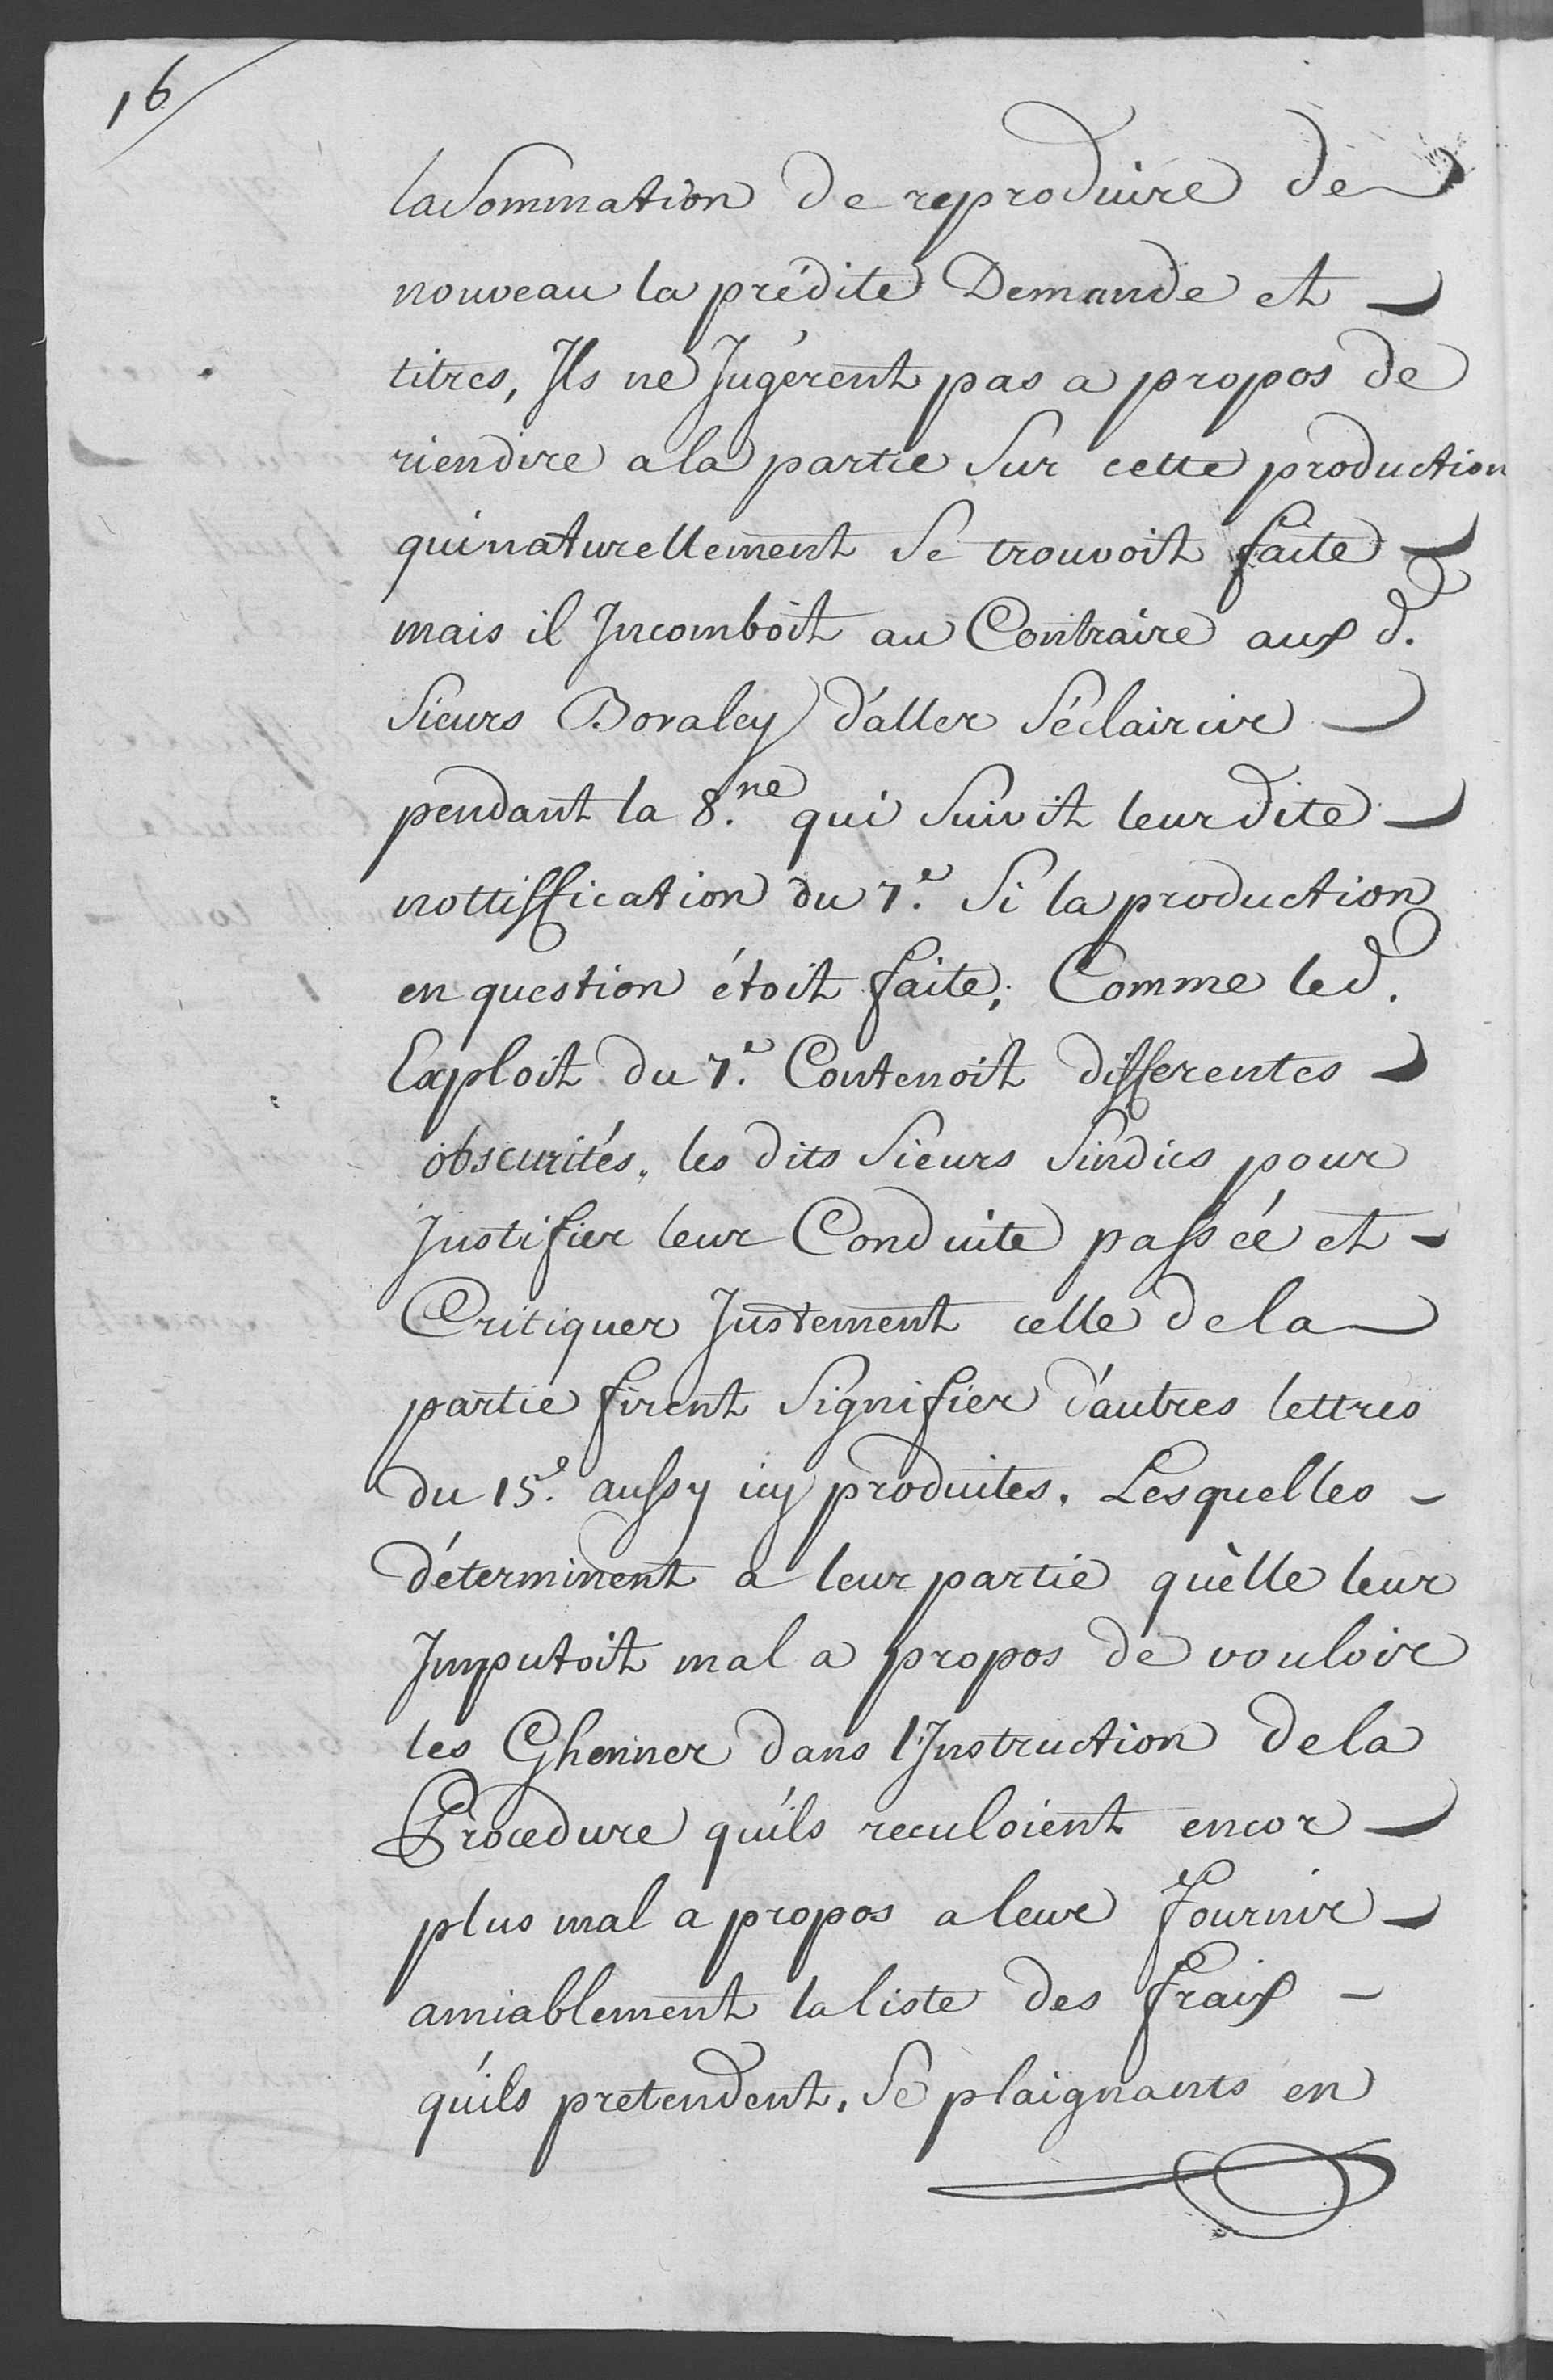 16/
la Sommation de reproduire de
nouveau la prédite Demande et
titres, Ils ne Jugérent pas a propos de
rien dire a la partie Sur cette production
qui naturellement Se trouvoit faite
mais il Incomboit au Contraire aux d.
Sieurs Bovaley d'aller S'éclaircir
pendant la 8.ne qui Suivit leur dite
nottiffication du 7.e Si la production
en question étoit faite; Comme led.
Exploit du 7.e Contenoit differentes
obscurités, les dits Sieurs Sindics pour
Justifier leur Conduite passée et
Critiquer Justement celle de la
partie firent Signifier d'autres lettres
du 15.e aussy icy produites. Lesquelles
déterminent a leur partie qu'elle leur
Imputoit mal a propos de vouloir
les Ghenner dans l'Instruction de la
Procedure qu'ils reculoient encor
plus mal a propos a leur Fournir
amiablement la liste des fraix
qu'ils pretendent, Se plaignants en